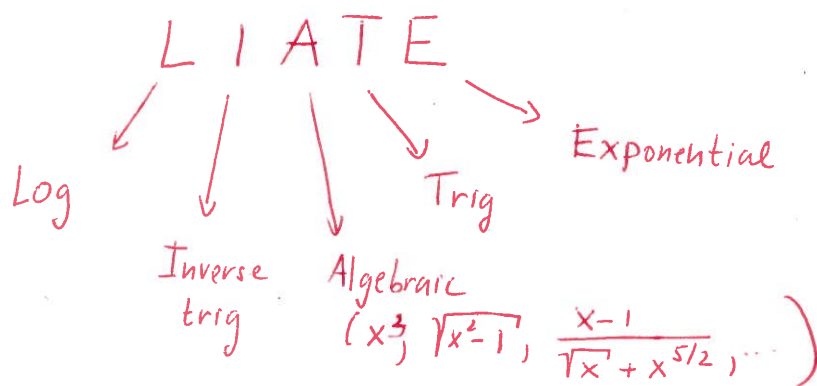 LIATE
Log
Inverse
trig
Algebraic
(x³, √(x²-1), (x-1)/(√x + x^(5/2)), ...)
Trig
Exponential